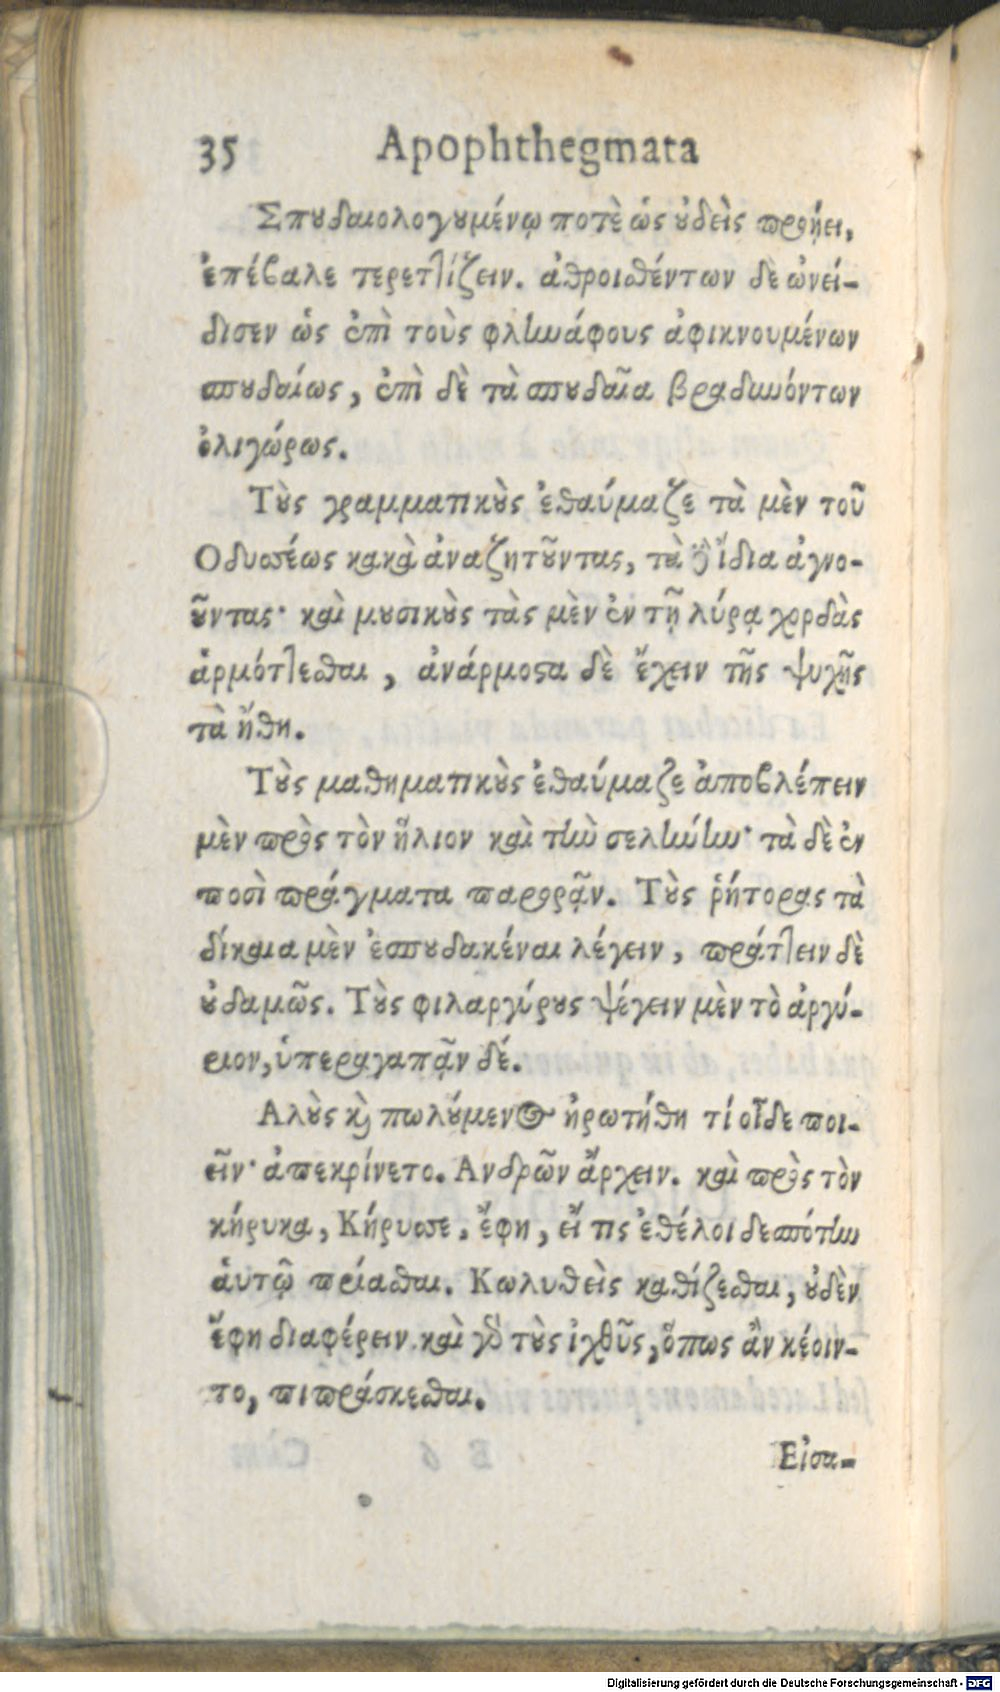 35 Apophthegmata
Σπουδαιολογουμένῳ ποτὲ ὡς οὐδεὶς προῄει,
ἐπέβαλε τερετίζειν. ἀθροισθέντων δὲ ὠνεί-
δισεν ὡς ἐπὶ τοὺς φλυάφους ἀφικνουμένων
σπουδαίως, ἐπὶ δὲ τὰ σπουδαῖα βραδυνόντων
ὀλιγώρως.
Τοὺς γραμματικοὺς ἐθαύμαζε τὰ μὲν τοῦ
Οδυσσέως κακὰ ἀναζητοῦντας, τὰ δὲ ἴδια ἀγνο-
οῦντας· καὶ μουσικοὺς τὰς μὲν ἐν τῇ λύρᾳ χορδὰς
ἁρμόττεσθαι, ἀνάρμοστα δὲ ἔχειν τῆς ψυχῆς
τὰ ἤθη.
Τοὺς μαθηματικοὺς ἐθαύμαζε ἀποβλέπειν
μὲν πρὸς τὸν ἥλιον καὶ τὴν σελήνην· τὰ δὲ ἐν
ποσὶ πράγματα παρορᾷν. Τοὺς ῥήτορας τὰ
δίκαια μὲν ἐσπουδακέναι λέγειν, πράττειν δὲ
οὐδαμῶς. Τοὺς φιλαργύρους ψέγειν μὲν τὸ ἀργύ-
ριον, ὑπεραγαπᾷν δέ.
Αλοὺς καὶ πωλούμενος ἠρωτήθη τί οἶδε ποι-
εῖν· ἀπεκρίνετο. Ανδρῶν ἄρχειν. καὶ πρὸς τὸν
κήρυκα, Κήρυσσε, ἔφη, εἴ τις ἐθέλοι δεσπότην
ἁυτῷ πρίασθαι. Κωλυθεὶς καθίζεσθαι, οὐδὲν
ἔφη διαφέρειν. καὶ γὰρ τοὺς ἰχθῦς, ὅπως ἂν κέοιν-
το, πιπράσκεσθαι.
Εἰσα-
Digitalisierung gefördert durch die Deutsche Forschungsgemeinschaft - DFG